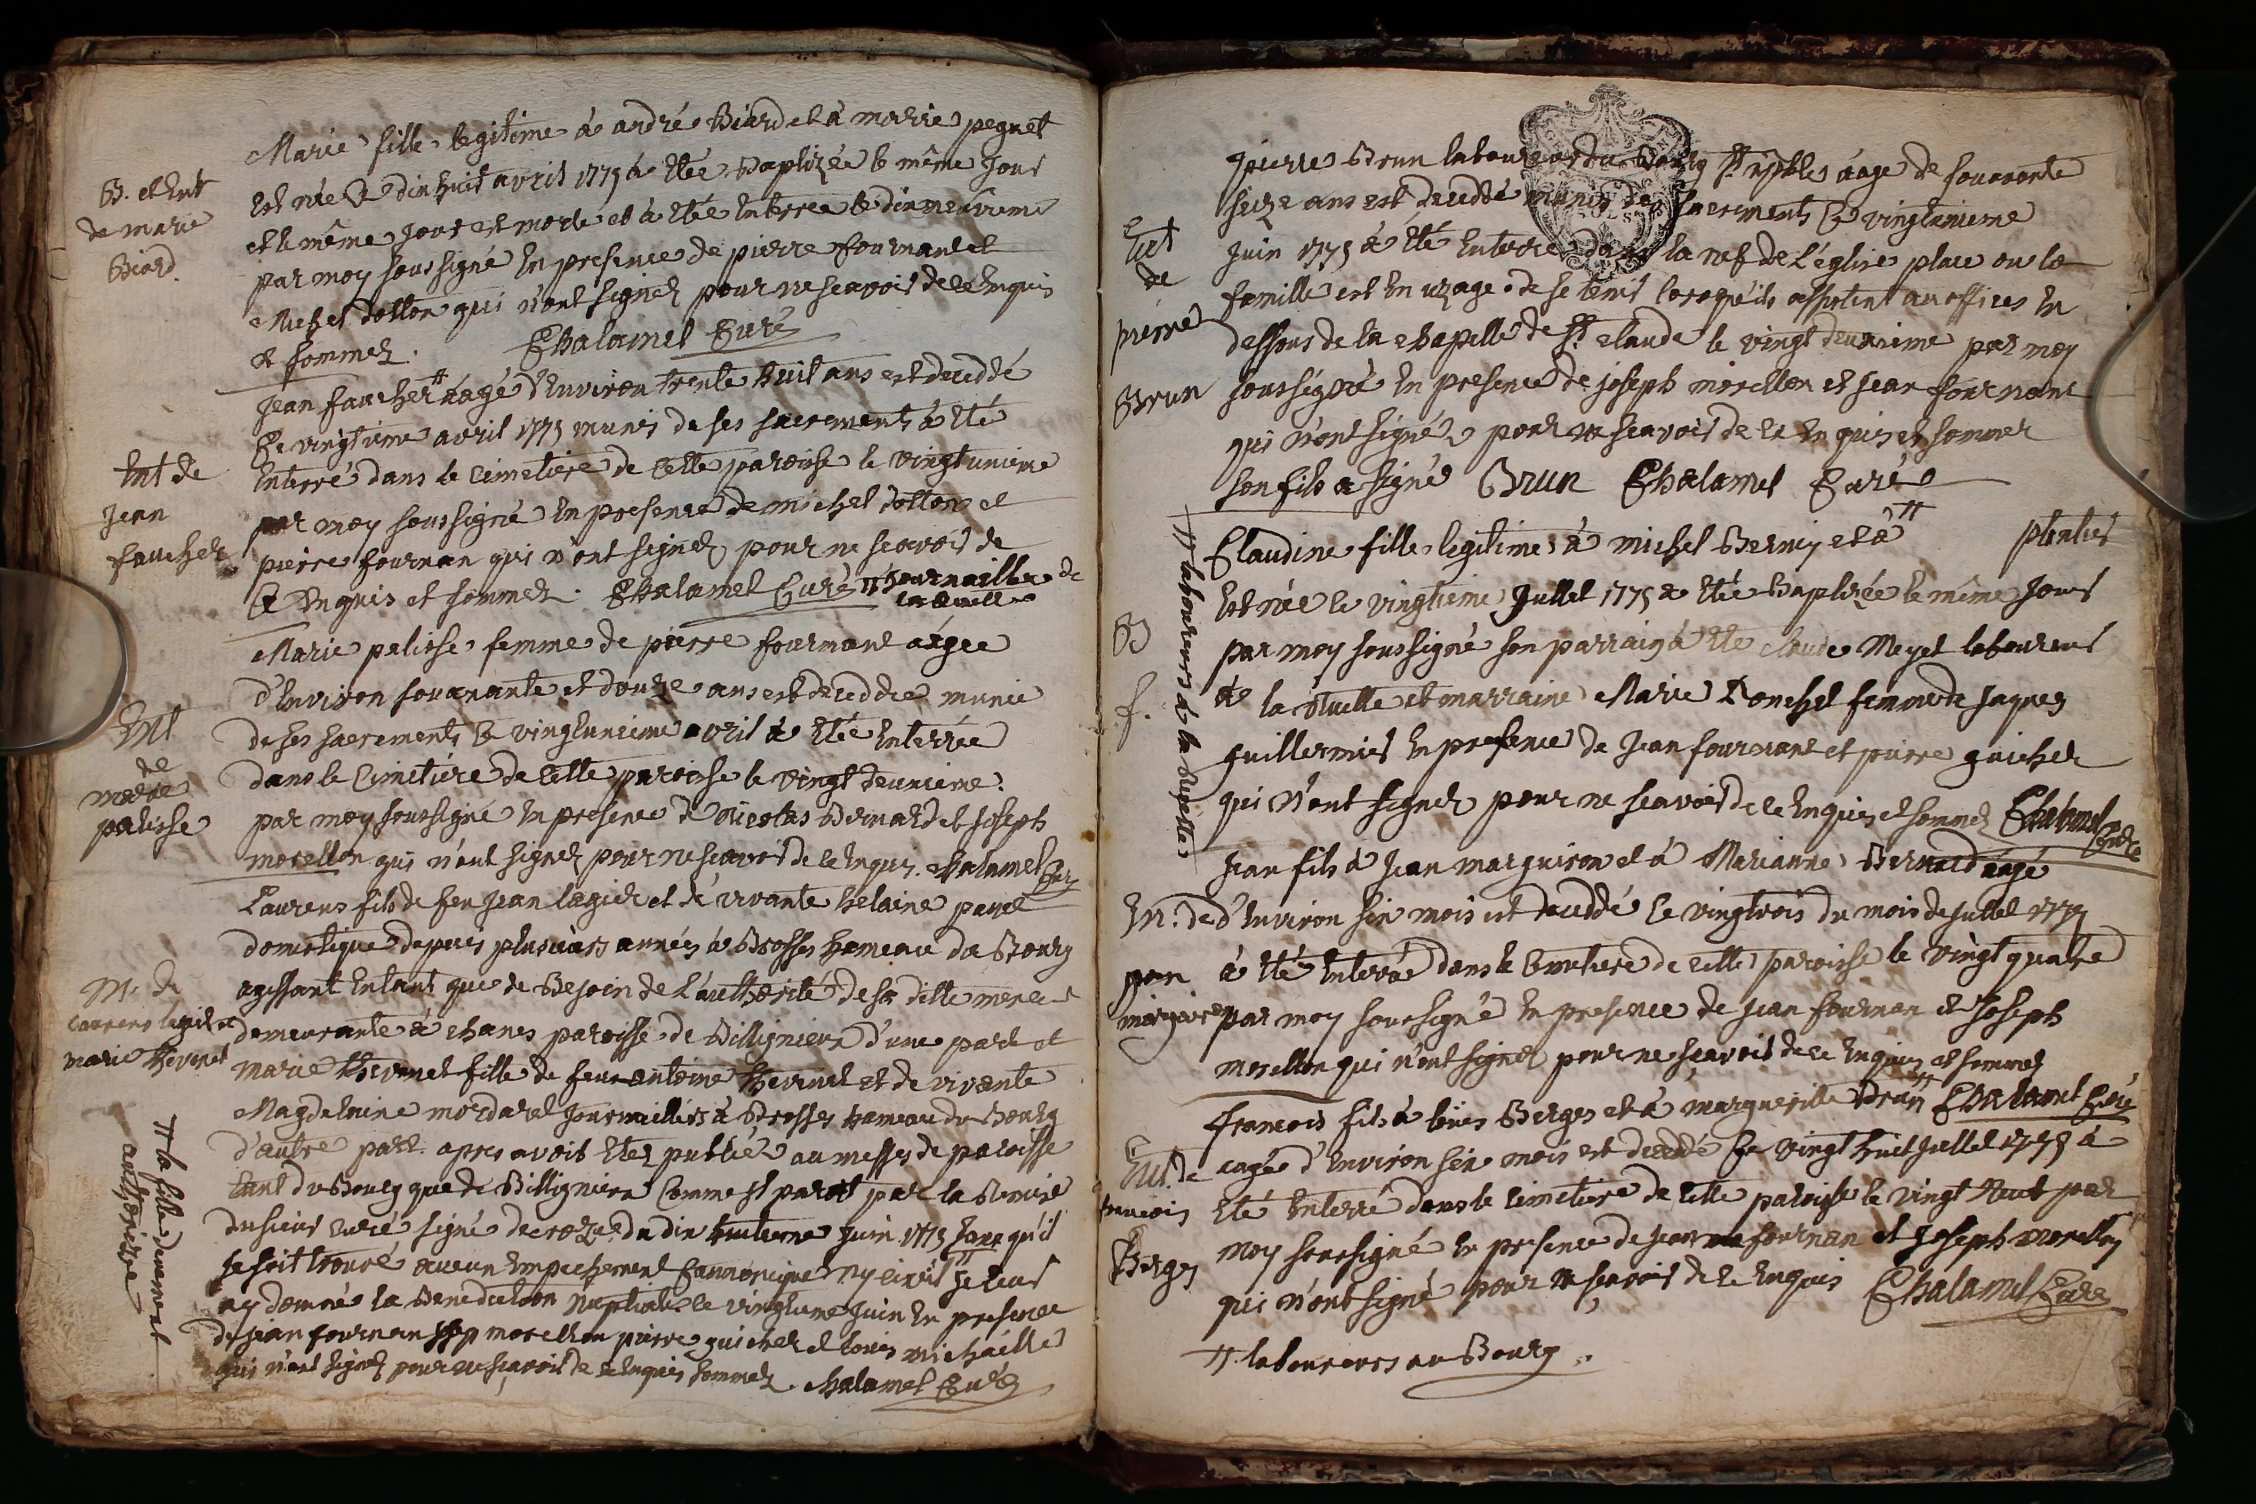 B. et Ent
de marie
Biord.
Marie fille legitime à andré Biord et à marie pegnet
est née le dix huit avril 1775 a etée Baptizée le même jour
et le même jour est morte et à etée enterree le dixneuvieme
par moy soussigné en presence de pierre fournant et
Michel dotton qui n'ont signez pour ne scavoir de ce enquis
et sommez. Chalamel Curé
Ent de
Jean
faucher
Jean faucher # aagé d'Environ trente huit ans est deceddé
Ce vingtieme avril 1775 munis de ses sacrements à eté
enterré dans le cimetiere de cette paroisse le vingtunieme
par moy soussigné en presence de michel dotton et
pierre fournan qui n'ont signez pour ne scavoir de
Ce enquis et sommez. Chalamel Curé # journaillier de
la ruelle
Ent
de
marie
palisse
Marie palisse femme de pierre fournant aagee
d'Environ souxante et douze ans est deceddée munie
de ses sacrements le vingtunieme avril à etée enterrée
dans le cimetiere de cette paroisse le vingt deuxieme.
par moy soussigné en presence de Nicolas Bernard et joseph
morellon qui n'ont signez pour ne scavoir de ce enquis. Chalamel Curé
M. de
Laurens legier et
marie thevenet
Laurens fils de feu jean legier et de vivante helaine
domestique depuis plusieurs années à Brosses hameau du Bourg
agissant entant que de Besoin de l'aucthorité de sa ditte mere
demeurante à chanes paroisse de Billignieux d'une part et
marie thevenet fille de feu antoine thevenet et de vivante
Magdelaine mordarel journailliers à Brosses hameau du Bourg
d'autre part. apres avoir etez publié au messes de paroisse
tant du Bourg que de Billignieux Comme il parait par la Remise
du sieur curé signé decroze du dix huitieme juin 1775 sans qu'il
se soit trouvé aucun empechement Cannonique ny civil # je leur
ay donné la Benediction Nuptialle le vingtieme juin en presence
de jean fournan joseph morellon pierre guicher et louis michaille
qui n'ont signez pour ne scavoir de ce enquis sommez. Chalamel Curé
# la fille demement
authorizée
Ent
de
pierre
Brun
pierre Brun laboureur du Bourg St aage de souxante
seize ans est deceddé munis des sacrements le vingtunieme
Juin 1775 à été Enterré dans la nef de l'église place ou la
famille est en uzage de se tenir lorsqu'ils assistent au offices en
dessous de la chapelle de St. claude le vingt deuxieme par moy
soussigné en presence de joseph morellon et jean fournant
qui n'ont signé pour ne scavoir de ce enquis et sommez
son fils a signé Brun Chalamel Curé
B
f.
Claudine fille legitime à michel Berniy et à #
est née le vingtieme Jullet 1775 a etée Baptizée le même jour
par moy soussigné son parrain à eté claude Meyet laboureur
de la Ruelle et marraine Marie Ronchet femme de Jaques
guillermier en presence de jean fournant et pierre guicher
qui n'ont signez pour ne scavoir de ce enquis et sommez Chalamel Curé
# laboureurs à la Ruelle
En. de
jean
marguiron
jean fils à jean marguiron et à Marianne Bernard aagé
d'Environ six mois est deceddé le vingtrois du mois de Jullet 1775
à eté enterré dans le cimetiere de cette paroisse le vingt quatre
par moy soussigné en presence de jean fournan et joseph
morellon qui n'ont signez pour ne scavoir de ce enquis et sommez
Chalamel Curé
Ent. de
francois
Berges
francois fils à louis Berges et à marguerite Brun #
aagé d'Environ six mois est deceddé Ce vingt huit Jullet 1775 à
eté enterré dans le cimetiere de cette paroisse le vingt Neuf par
moy soussigné en presence de jean fournan et joseph morellon
qui n'ont signé pour ne scavoir de ce enquis Chalamel Curé
#. laboureurs au Bourg.